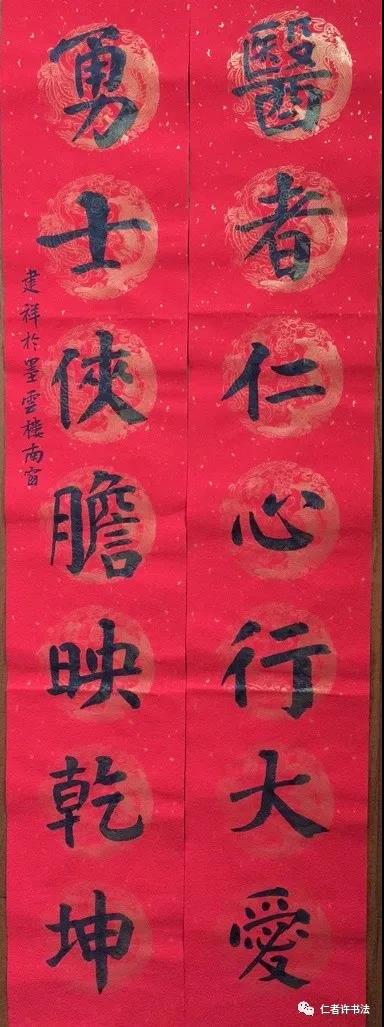 醫者仁心行大愛
勇士俠膽映乾坤
建祥於墨雲樓南窗
仁者许书法